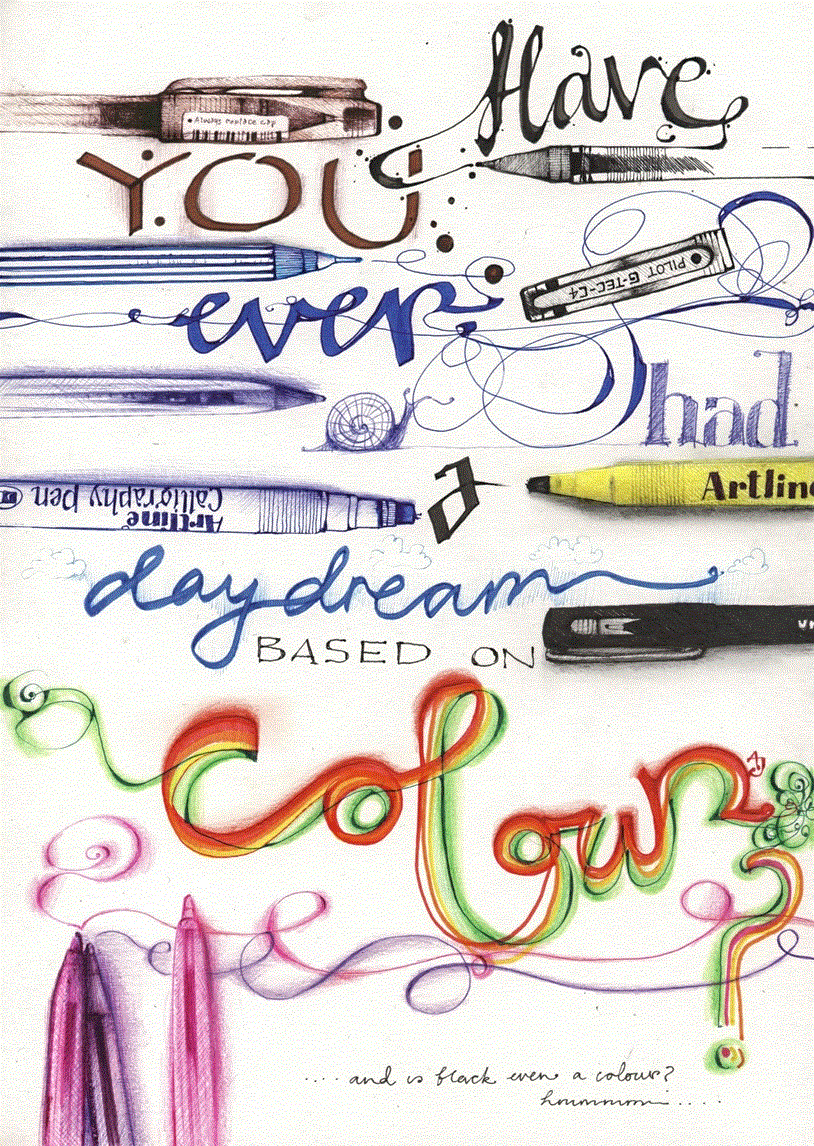 Have
Always replace cap
YOU
PILOT G-TEC-C4
ever
had
Artline
Calligraphy pen
a
Artline
daydream
BASED ON
colour?
.... and is black even a colour?
hmmmmm....